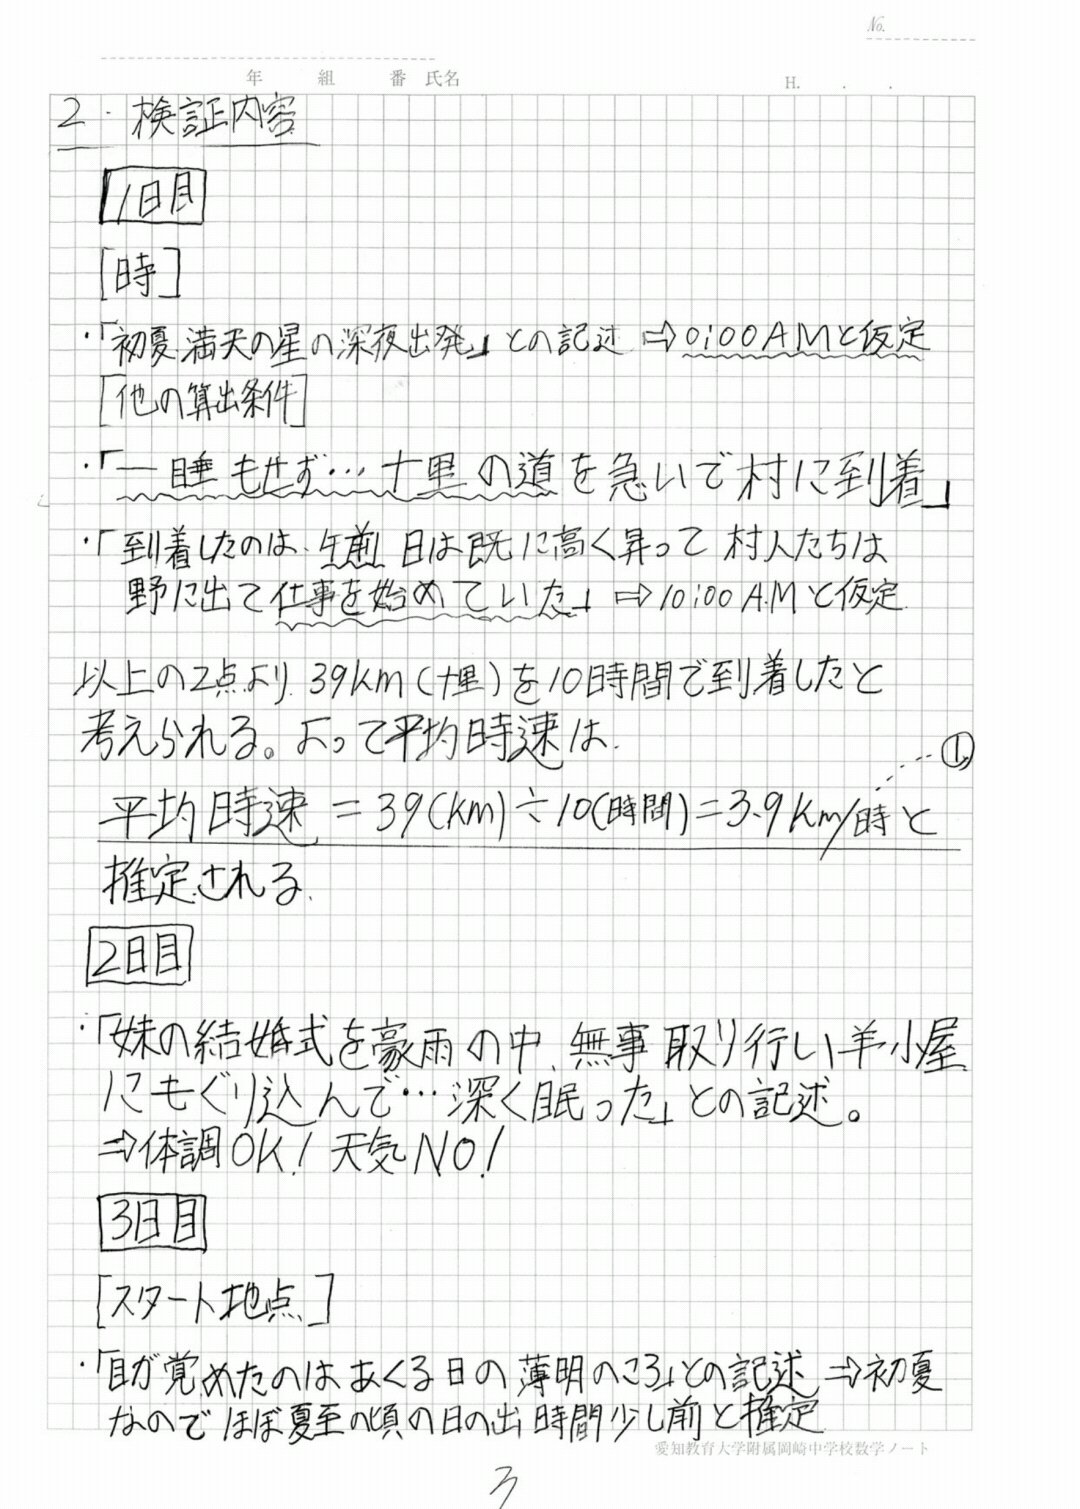 No.
年 組 番 氏名 H. . .
2. 検証内容
1日目
[時]
・「初夏 満天の星の深夜出発」との記述 ⇨0:00AMと仮定
[他の算出条件]
・「一睡もせず…十里の道を急いで村に到着」
・「到着したのは、午前 日は既に高く昇って 村人たちは
野に出て仕事を始めていた」⇨10:00A.Mと仮定
以上の2点より 39km(十里)を10時間で到着したと
考えられる。よって平均時速は
①
平均時速 = 39(km)÷10(時間)=3.9km/時と
推定される
2日目
・「妹の結婚式を豪雨の中、無事取り行い羊小屋
にもぐり込んで…深く眠った」との記述。
⇨体調OK! 天気NO!
3日目
[スタート地点]
・「目が覚めたのはあくる日の薄明のころ」との記述 ⇨初夏
なのでほぼ夏至の頃の日の出時間少し前と推定
愛知教育大学附属岡崎中学校数学ノート
3